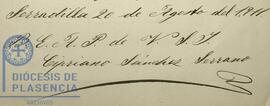 Serradilla 20 de Agosto del 1911
L. C. A. P. de V. S. I.
Cipriano Sánchez Serrano
DIÓCESIS DE
PLASENCIA
ARCHIVOS